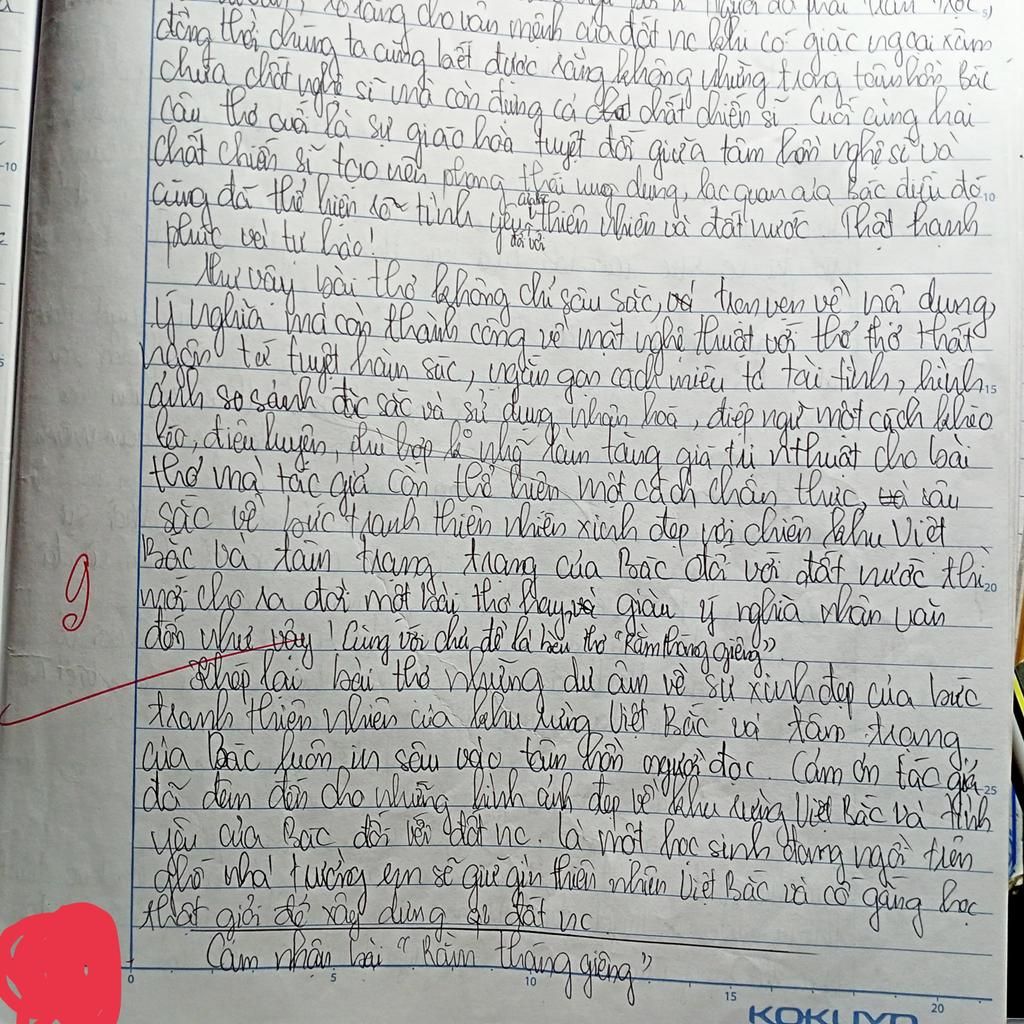 lo lắng cho vận mệnh của đất nc khi có giặc ngoại xâm
đồng thời chúng ta cũng biết được rằng không những trong tâm hồn Bác
chứa chất nghệ sĩ mà còn đựng cả chất chiến sĩ Cuối cùng hai
câu thơ cuối là sự giao hoà tuyệt đối giữa tâm hồn nghệ sĩ và
chất chiến sĩ tạo nên phong thái ung dung, lạc quan của Bác điều đó
cũng đã thể hiện rõ tình yêu của Bác đối với thiên nhiên và đất nước Thật hạnh
phúc và tự hào!
Như vậy bài thơ không chỉ sâu sắc, trọn vẹn về nội dung,
ý nghĩa mà còn thành công về mặt nghệ thuật với thể thơ thất
ngôn tứ tuyệt hàm súc, ngắn gọn cách miêu tả tài tình, hình
ảnh so sánh đặc sắc và sử dụng nhân hoá, điệp ngữ một cách khéo
léo, điêu luyện, phù hợp k nhữ làm tăng giá trị nthuật cho bài
thơ mà tác giả còn thể hiện một cách chân thực, sâu
sắc về bức tranh thiên nhiên xinh đẹp với chiến khu Việt
Bắc và tâm trạng trạng của Bác đối với đất nước thì
mới cho ra đời một bài thơ hay, và giàu ý nghĩa nhân văn
đến như vậy! Cùng với chủ đề là bài thơ "Rằm tháng giêng".
Khép lại bài thơ những dư âm về sự xinh đẹp của bức
tranh thiên nhiên của khu rừng Việt Bắc và tâm trạng
của Bác luôn in sâu vào tâm hồn người đọc. Cảm ơn tác giả
đã đem đến cho những hình ảnh đẹp về khu rừng Việt Bắc và tình
yêu của Bác đối với đất nc. là một học sinh đang ngồi trên
ghế nhà trường em sẽ giữ gìn thiên nhiên Việt Bắc và cố gắng học
thật giỏi để xây dựng đất nc
Cảm nhận bài "Rằm tháng giêng"
9
10
15
20
25
0 5 10 15 20
KOKUYO